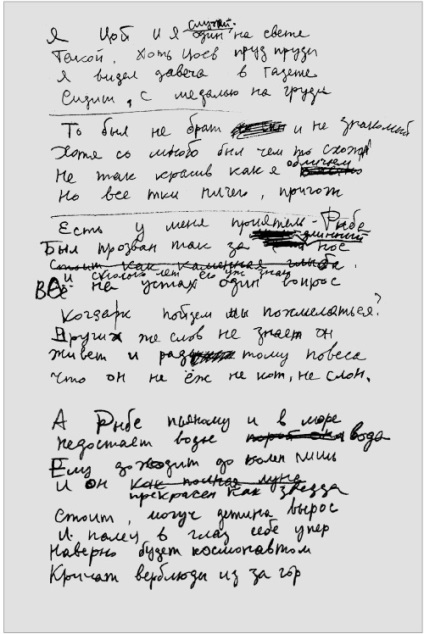 Я Цой и я один на свете
Такой. Хоть Цоев пруд пруди
Я видел давеча в газете
Сидит, с медалью на груди
То был не брат и не знакомый
Хотя со мною был чем то схож
Не так красив как я обличьем
Но все тки ничего, пригож
Есть у меня приятель - Рыба
Был прозван так за длинный нос
Стоит как каменная глыба.
и сколько лет его уж знаю
Всё на устах один вопрос
пойдем мы похмелаться?
Других же слов не знает он
Живет и рад тому повеса
Что он не ёж не кот, не слон.
А Рыбе пьяному и в море
Недостает воды вода
Ему доходит до колен лишь
И он как полная луна
прекрасен как звезда
Стоит, могуч детина вырос
И палец в глаз себе упер
Наверно будет космонавтом
Кричат верблюды из за гор